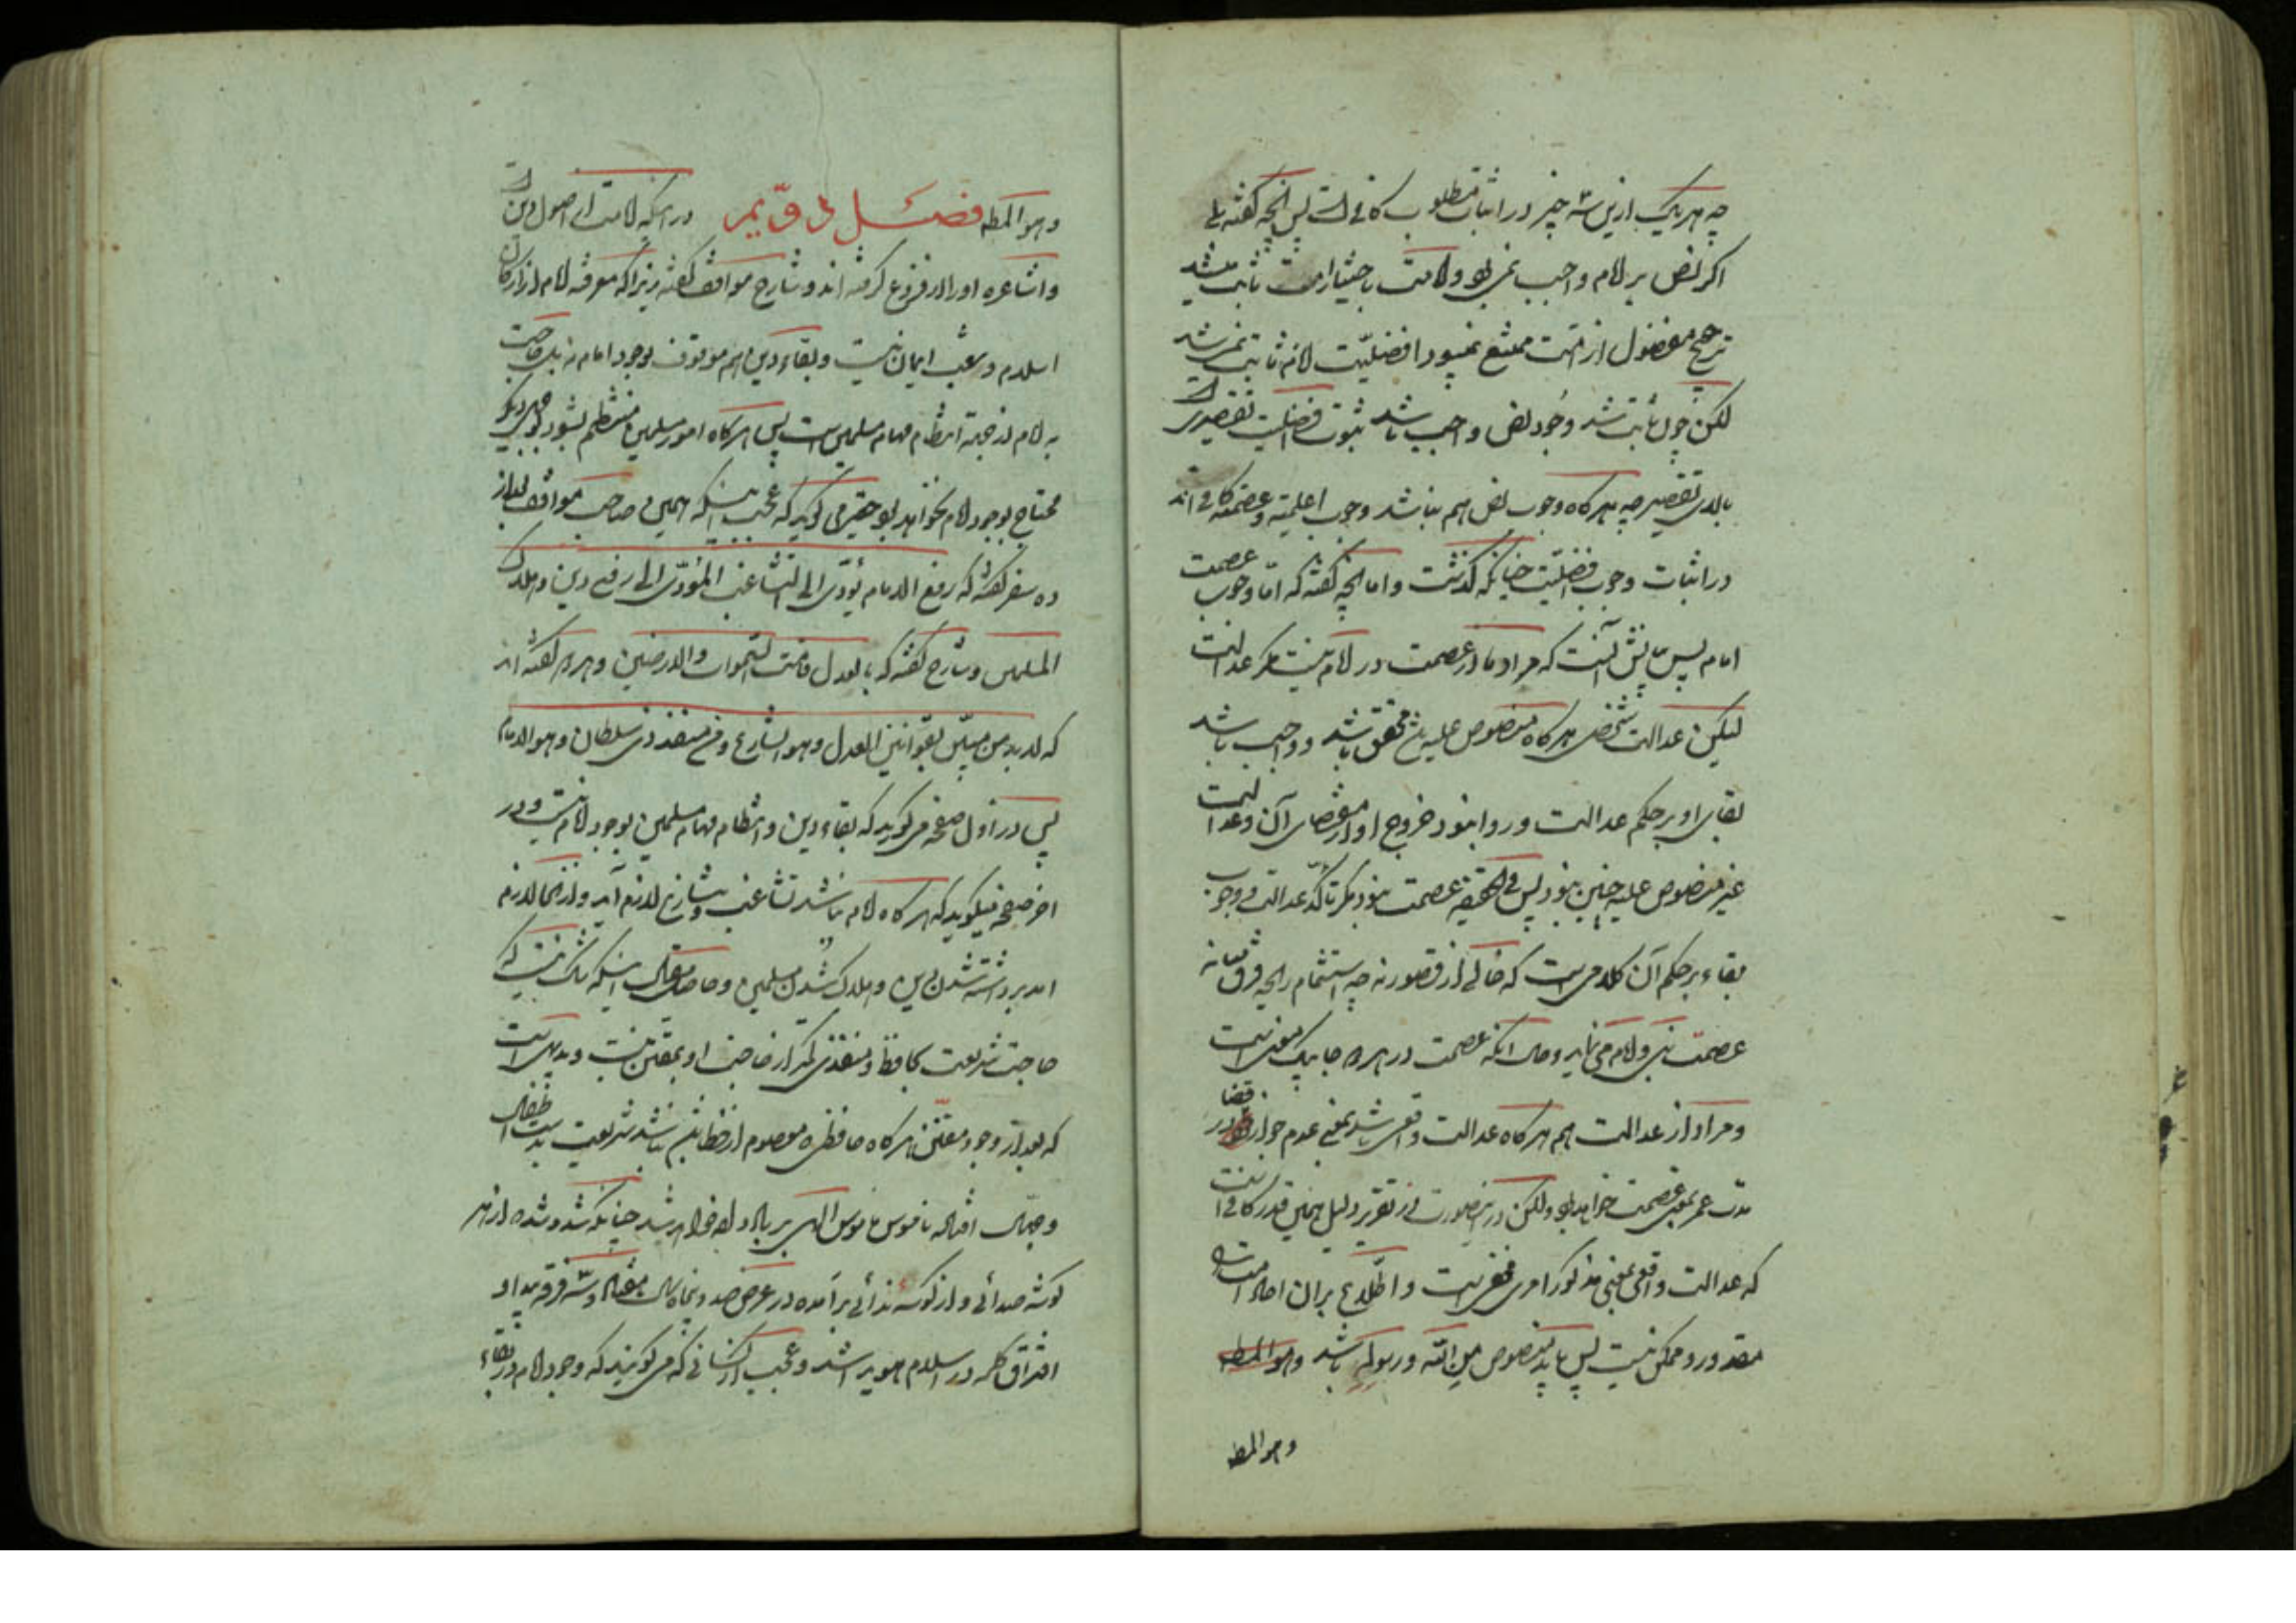 چه هر یک ازین سه چیز در اثبات مطلوب کافی است پس آنچه گفته بلی
اکر نص بر امام واجب نمی بود و امامت باختیار امت ثابت میشد
ترجیح مفضول از امت ممتنع نمیبود افضلیت لازم ثابت نمی شد
لکن چون ثابت شد وجود نص واجب باشد ثبوت افضلیت تقصیری است
بالای تقصیر چه هر کاه وجوب نص هم نباشد وجوب اعلمیته وعصمته کافی اند
در اثبات وجوب افضلیت چنانکه گذشت و اما آنچه گفته که اما وجوب عصمت
امام پس بیانش آنست که مراد ما از عصمت در امام نیست مکر عدالت
لیکن عدالت شخصی هر کاه منصوص علیه شد محقق باشد و واجب باشد
بقای او بر حکم عدالت و روا نبود خروج او از مقتضای آن و عدالت
غیر منصوص علیه چنین نبود پس فی الحقیقه عصمت نبود مکر تاکد عدالت و وجوب
بقاء بر حکم آن کلامی است که خالی از قصور نه چه استشمام رایحه فرق میانه
عصمت نبی و امام می نماید و حال آنکه عصمت در هر دو جا بیک معنی است
و مراد از عدالت هم هر کاه عدالت واقعی باشد بمعنی عدم جواز خطا در
مدت عمر بمعنی عصمت خواهد بود ولکن درینصورت در تقریر دلیل همین قدر کافی است
که عدالت واقعی بمعنی مذکور امری مخفی است و اطلاع بران احاد امت را
مقدور و ممکن نیست پس باید منصوص من الله و رسوله باشد وهو المط
وهو المط
وهو المط فصل در اینکه امامت از اصول دین است
و اشاعره او را از فروع کرفته اند و شارح مواقف گفته زیرا که معرفه امام از ارکان
اسلام و شعب ایمان نیست و بقاء دین هم موقوف بوجود امام نه بلکه حاجت
به امام از جهة انتظام مهام مسلمین است پس هر کاه امور مسلمین منتظم بشود بوجهی دیگر
محتاج بوجود امام نخواهد بود حقیر می کوید که عجب اینکه همین صاحب مواقف بعد از
ده سطر گفته که رفع الامام یؤدی الی التشاغب المؤدی الی رفع دین و هلاک
المسلمین و شارح گفته که بالعدل قامت السموات والارضین و هر دو گفته اند
که لابد من مبین بقوانین العدل وهو الشارع ومن منفذ ذی سلطان وهو الامام
پس در اول صفحه می کوید که بقاء دین و انتظام مهام مسلمین بوجود امام نیست و در
اخر صفحه میکوید که هر کاه امام نباشد تشاغب و تنازع لازم آید و از اینجا لازم
اید برداشته شدن دین و هلاک شدن مسلمین و حاصل مقال اینکه شک نیست که
حاجت شریعت بحافظ و منفذی کمتر از حاجت او بمقنن نیست و بدیهی است
که بعد از وجود مقنن هر کاه حافظی معصوم از خطا نباشد شریعت بدست اطفال
و جهال افتاده ناموس ناموس الهی بر باد داده خواهد شد چنانکه شد و شده از هر
کوشه صدائی و از کوشه ندائی برآمده در عرض صد و پنجاه سال هفتاد و سه فرقه پیدا و
افتراق کلمه در اسلام هویدا شد و عجب از کسانی که می کویند که وجود امام در بقاء